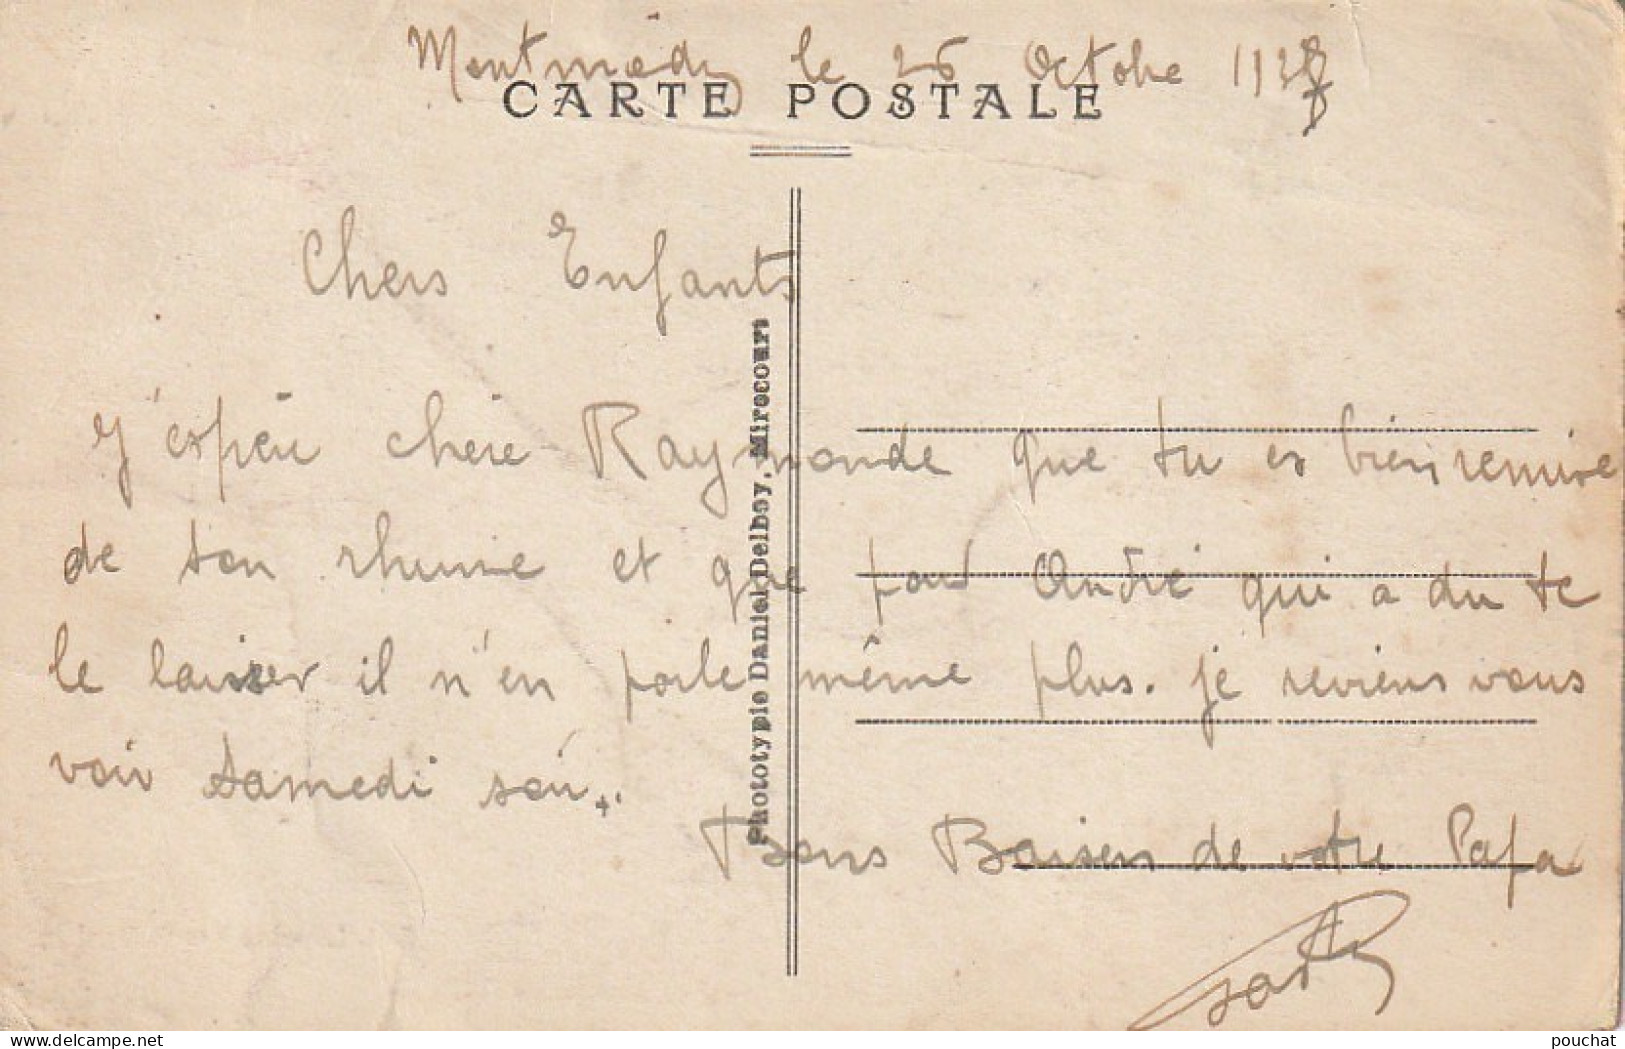 Montmédy le 26 Octobre 1937
CARTE POSTALE
Chers Enfants
J'espère chère Raymonde que tu es bien remise
de ton rhume et que pour André qui a du te
le laisser il n'en parle même plus. je reviens vous
voir Samedi soir.
Bons Baisers de votre Papa
Phototypie Daniel Delboy, Mirecourt
www.delcampe.net
pouchat